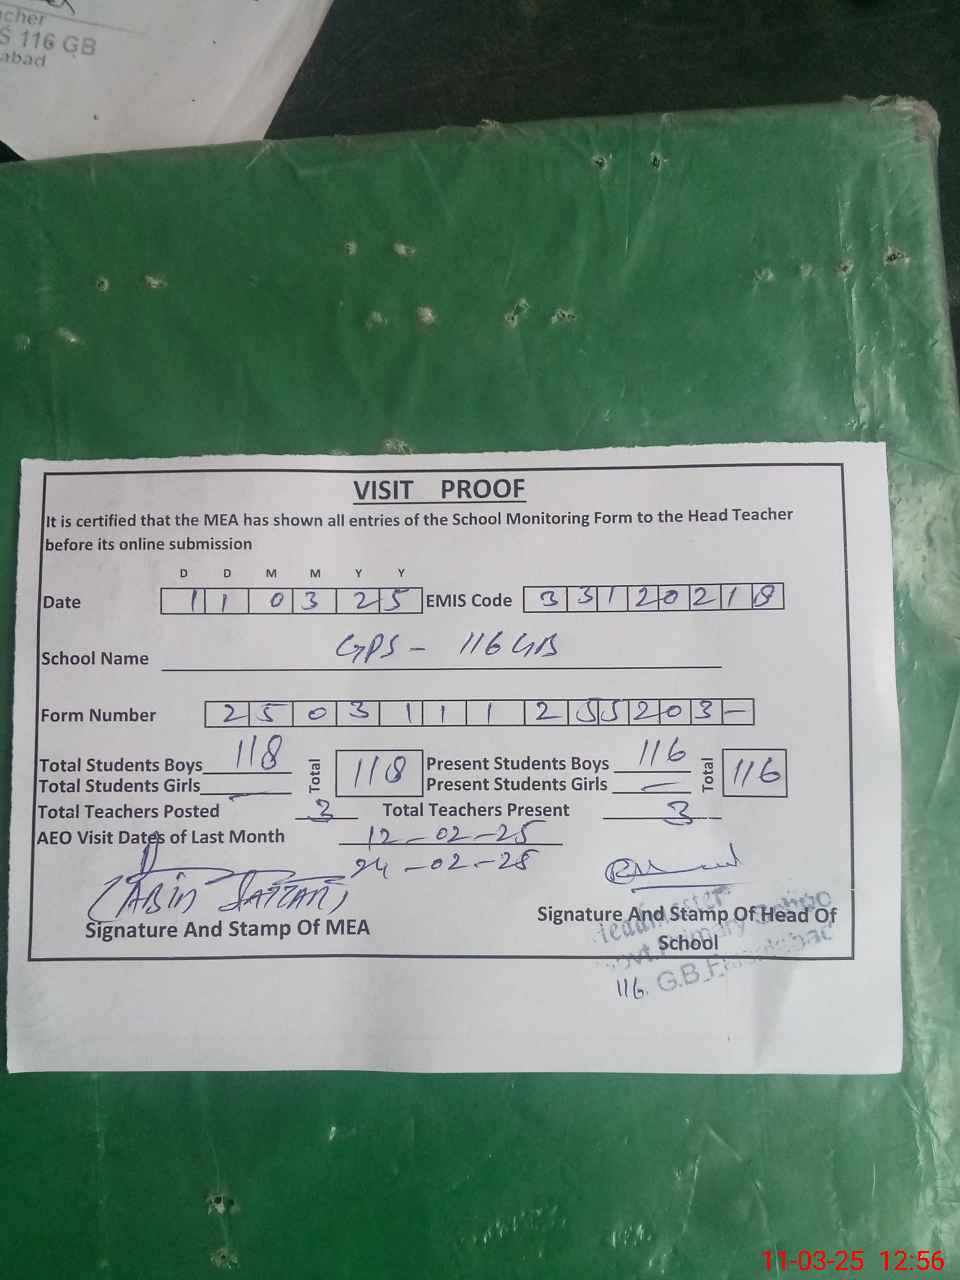 cher
S 116 GB
abad
VISIT PROOF
It is certified that the MEA has shown all entries of the School Monitoring Form to the Head Teacher
before its online submission
D D M M Y Y
Date 1 1 0 3 2 5 EMIS Code 3 3 1 2 0 2 1 8
School Name GPS - 116 GB
Form Number 2 5 0 3 1 1 1 2 5 5 2 0 3 -
Total Students Boys 118 Total 118 Present Students Boys 116 Total 116
Total Students Girls - Present Students Girls -
Total Teachers Posted 3 Total Teachers Present 3
AEO Visit Dates of Last Month 12-02-25
24-02-25
Signature And Stamp Of MEA
Signature And Stamp Of Head Of
School
Headmaster
Govt. Primary
116. G.B.
11-03-25 12:56